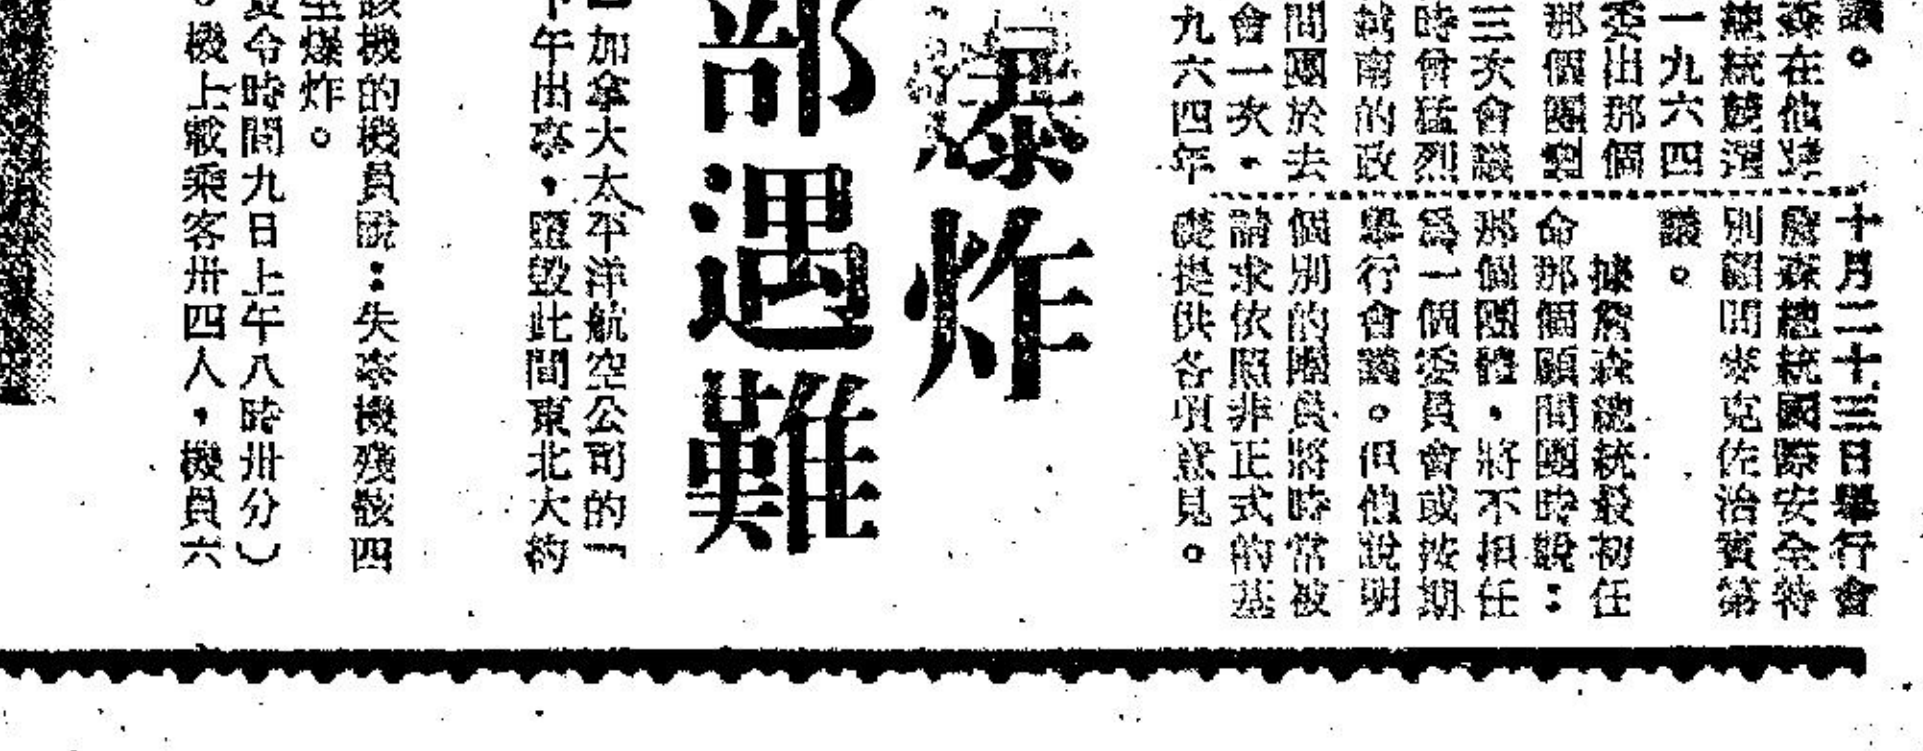 議。
森在他
總統競選
一九六四
委出那個
那個團體
三次會議
時曾猛烈
越南的政
問團於去
會一次，
九六四年
十月二十三日舉行會
詹森總統國際安全特
別顧問麥克佐治賓第
議。
據詹森總統最初任
命那個顧問團時說：
那個團體，將不担任
爲一個委員會或按期
舉行會議。但他說明
個別的團員將時常被
請求依照非正式的基
礎提供各項意見。
爆炸
部遇難
加拿大太平洋航空公司的一
午出事，墮毀此間東北大約
該機的機員說：失事機殘骸四
爆炸。
令時間九日上午八時卅分）
。機上載乘客卅四人，機員六